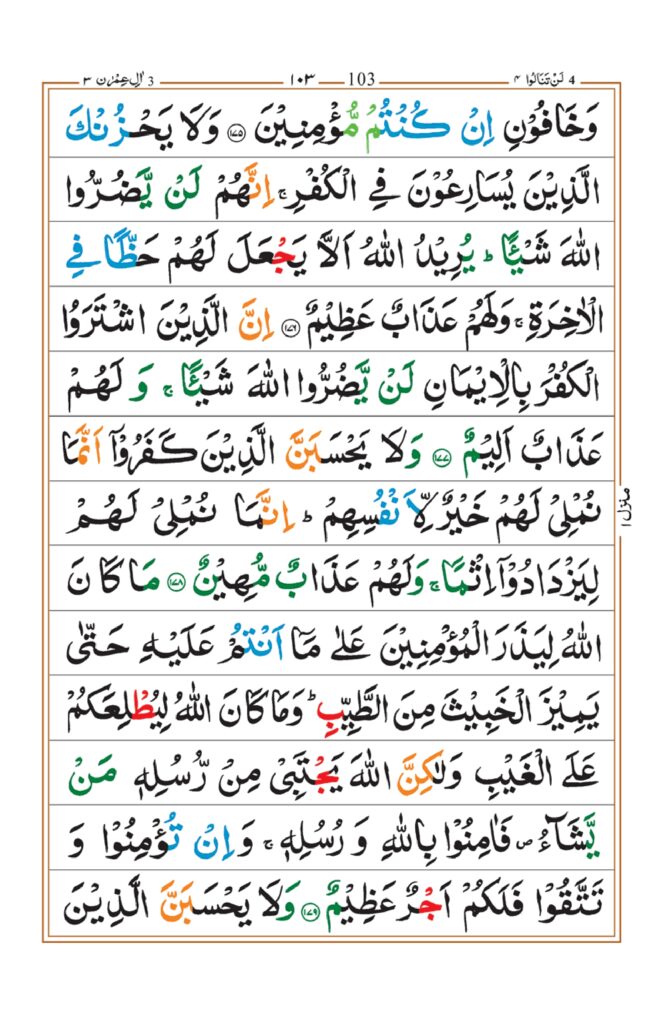 4 لَنْ تَنَالُوا ۴ 103 ۱۰۳ 3 اٰلِ عِمْرٰن ۳
وَخَافُوْنِ اِنْ كُنْتُمْ مُّؤْمِنِيْنَ ۝۱۷۵ وَلَا يَحْزُنْكَ
الَّذِيْنَ يُسَارِعُوْنَ فِي الْكُفْرِ ۚ اِنَّهُمْ لَنْ يَّضُرُّوا
اللّٰهَ شَيْـًٔا ؕ يُرِيْدُ اللّٰهُ اَلَّا يَجْعَلَ لَهُمْ حَظًّا فِي
الْاٰخِرَةِ ۚ وَلَهُمْ عَذَابٌ عَظِيْمٌ ۝۱۷۶ اِنَّ الَّذِيْنَ اشْتَرَوُا
الْكُفْرَ بِالْاِيْمَانِ لَنْ يَّضُرُّوا اللّٰهَ شَيْـًٔا ۚ وَ لَهُمْ
عَذَابٌ اَلِيْمٌ ۝۱۷۷ وَلَا يَحْسَبَنَّ الَّذِيْنَ كَفَرُوْۤا اَنَّمَا
نُمْلِيْ لَهُمْ خَيْرٌ لِّاَنْفُسِهِمْ ؕ اِنَّمَا نُمْلِيْ لَهُمْ
لِيَزْدَادُوْۤا اِثْمًا ۚ وَلَهُمْ عَذَابٌ مُّهِيْنٌ ۝۱۷۸ مَا كَانَ
اللّٰهُ لِيَذَرَ الْمُؤْمِنِيْنَ عَلٰى مَاۤ اَنْتُمْ عَلَيْهِ حَتّٰى
يَمِيْزَ الْخَبِيْثَ مِنَ الطَّيِّبِ ؕ وَمَا كَانَ اللّٰهُ لِيُطْلِعَكُمْ
عَلَى الْغَيْبِ وَلٰكِنَّ اللّٰهَ يَجْتَبِيْ مِنْ رُّسُلِهٖ مَنْ
يَّشَآءُ ۪ فَاٰمِنُوْا بِاللّٰهِ وَ رُسُلِهٖ ۚ وَاِنْ تُؤْمِنُوْا وَ
تَتَّقُوْا فَلَكُمْ اَجْرٌ عَظِيْمٌ ۝۱۷۹ وَلَا يَحْسَبَنَّ الَّذِيْنَ
منزل ۱